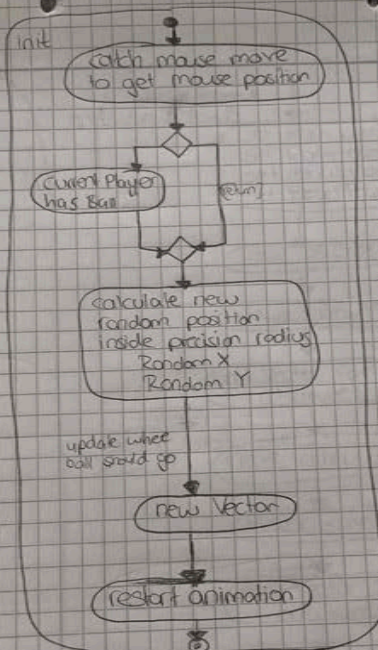 init
catch mouse move
to get mouse position
current Player
has Ball
[return]
calculate new
random position
inside precision radius
Random X
Random Y
update where
ball should go
new Vector
restart animation